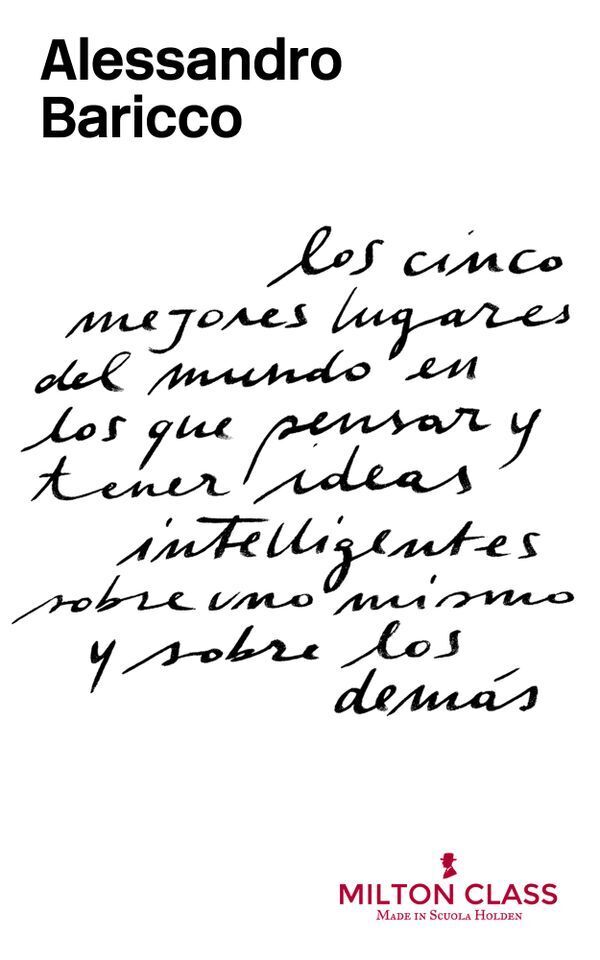 Alessandro
Baricco
los cinco
mejores lugares
del mundo en
los que pensar y
tener ideas
intelligentes
sobre uno mismo
y sobre los
demás
MILTON CLASS
MADE IN SCUOLA HOLDEN